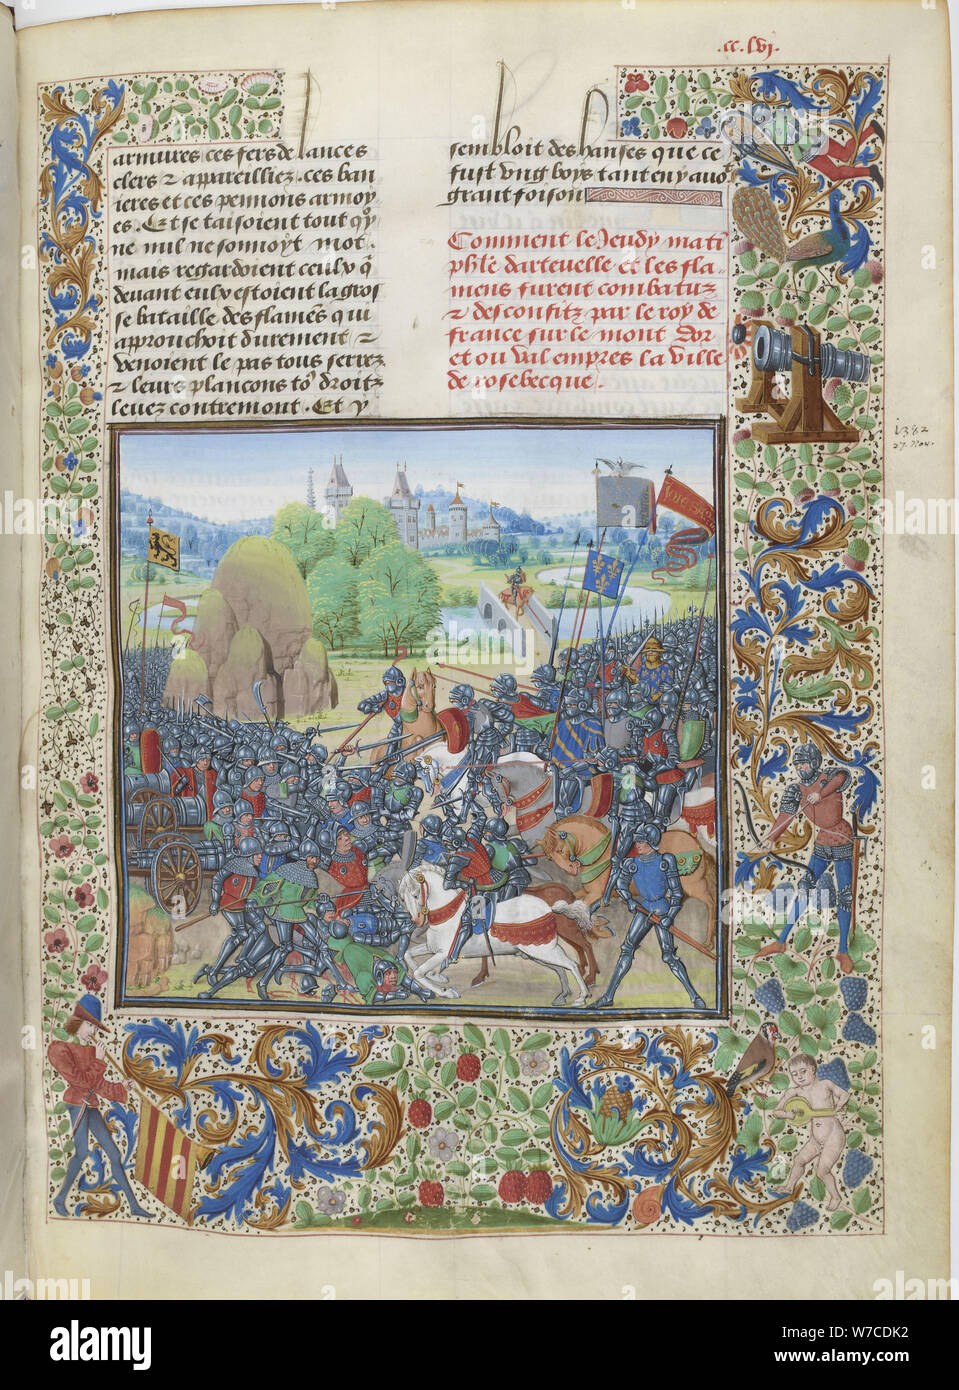 .cc.lvi.
armures ces fers de lances
clers ⁊ appareilliez. ces ban
ieres et ces pennons armoy
es. Et se taisoient tout qͦy
ne mil ne sonnoyt mot.
mais regardoient ceulx q̄
devant eulx estoient la gros
se bataille des flamēs qui
approuchoit durement ⁊
venoient le pas tous serrez
⁊ leurs plancons toꝰ droitz
levez contremont. Et y
sembloit des hanses que ce
fust ung boys tant en y avoͥ
grant foison
Comment le Jeudy matī
phłe dartevelle et les fla-
mens furent combatuz
⁊ desconfitz par le roy de
france sur le mont Dor
et ou val empres la ville
de rosebecque.
1382
27. Nov.
alamy
Image ID: W7CDK2
www.alamy.com